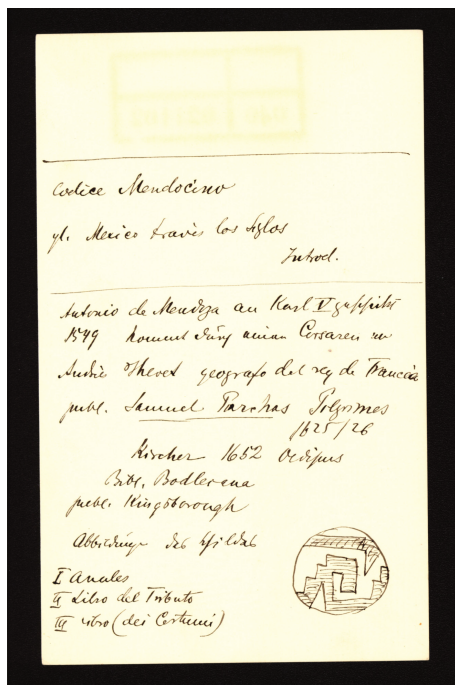 Codice Mendocino
vl. Mexico través los Siglos
Introd.
Antonio de Mendoza an Karl V geschickt
1549 kommt durch einen Corsaren an
André Thevet geografo del rey de Francia
publ. Samuel Purchas Pilgrimes
1625/26
Kircher 1652 Oedipus
Bibl. Bodleeana
publ. Kingsborough
Abbildung des Schildes
I Anales
II Libro del Tributo
III Libro (dei Costumi)